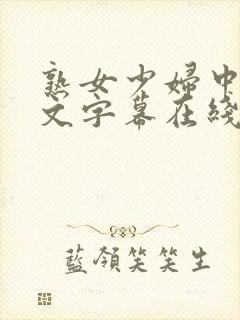 熟女少婦中
文字幕在綫
藍領笑笑生